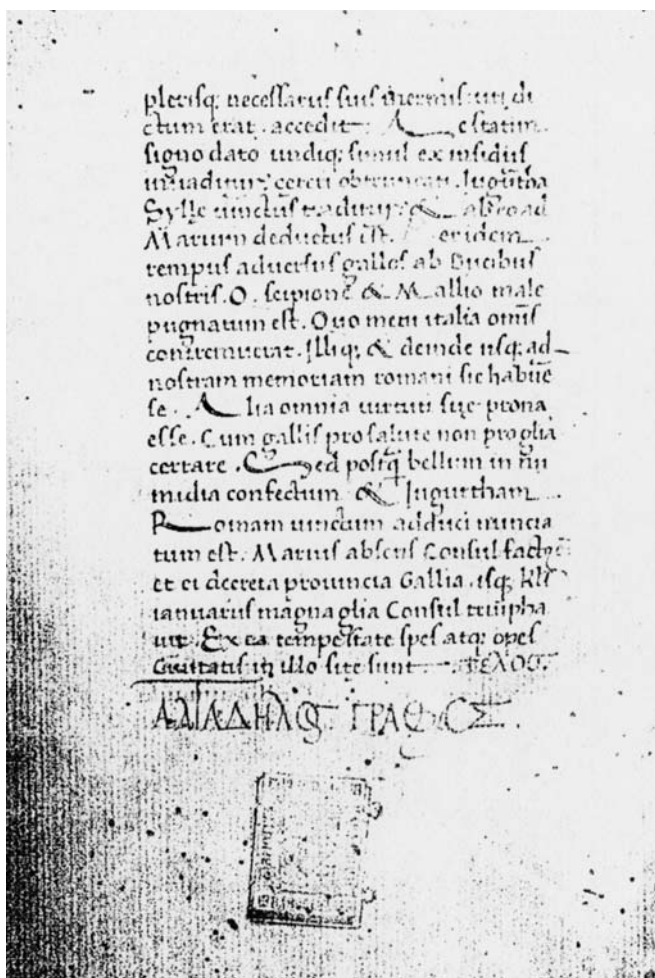 plerisq; necessariis suis inermis: uti di
ctum erat. accedit: Ac statim
signo dato undiq; simul ex insidiis
invaditur: ceteri obtruncati. Iugurtha
Sylle uinctus traditur: & ab eo ad
Marium deductus est. Per idem
tempus adversus gallos ab Ducibus
nostris. Q. scipione & M. allio male
pugnatum est. Quo metu italia omīs
contremuerat. Illiq; & deinde usq; ad
nostram memoriam romani sic habue
re. Alia omnia uirtuti sue prona
esse. Cum gallis pro salute non pro glīa
certare. Sed postq̄ bellum in nu
midia confectum & Iugurtham
Romam uinctum adduci nuncia
tum est. Marius absens Consul factus
et ei decreta provincia Gallia. isq; Kl̄
ianuariis magna glīa Consul triūpha
uit. Ex ea tempestate spes atq; opes
Ciuitatis in illo site sunt. ΤΕΛΟΣ.